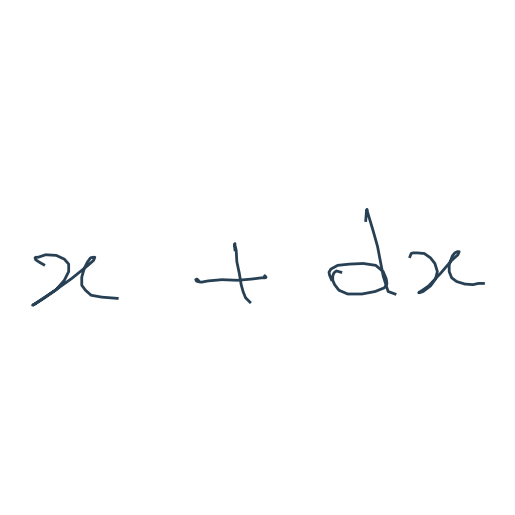 x + dx